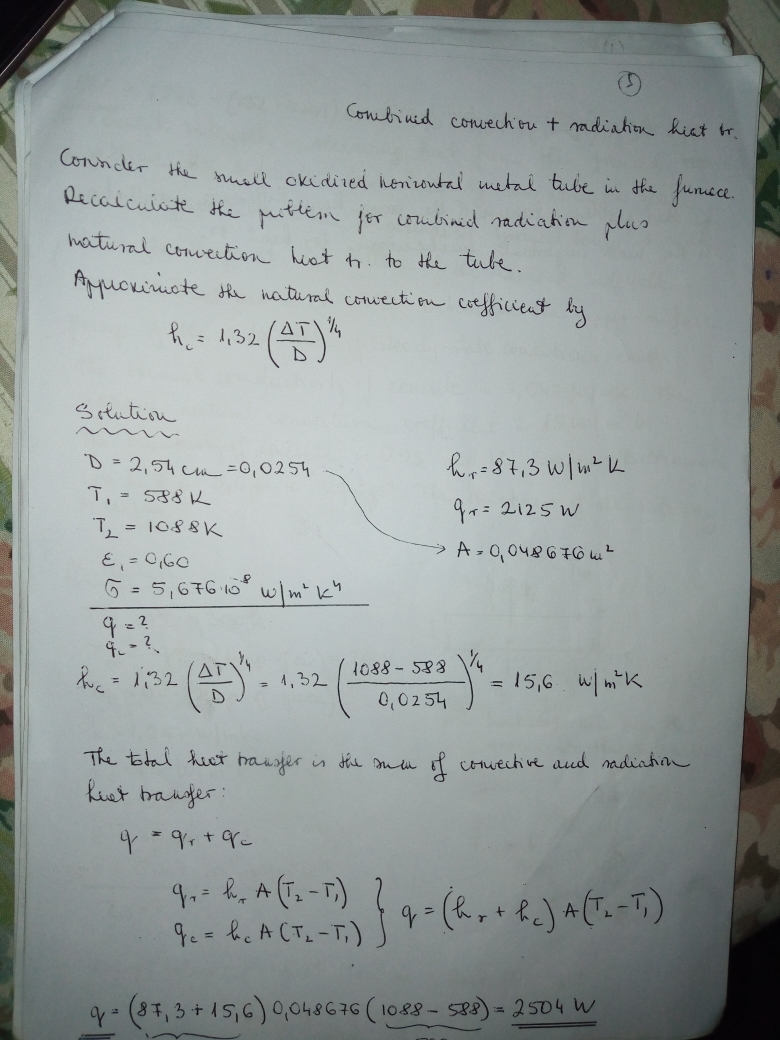 (1)
5
Combined convection + radiation heat tr.
Consider the small oxidized horizontal metal tube in the furnace.
Recalculate the problem for combined radiation plus
natural convection heat tr. to the tube.
Approximate the natural convection coefficient by
h_c = 1,32 (ΔT/D)^1/4
Solution
D = 2,54 cm = 0,0254
T₁ = 588 K
T₂ = 1088 K
ε₁ = 0,60
σ = 5,676·10⁻⁸ W/m² K⁴
h_r = 87,3 W/m² K
q_r = 2125 W
A = 0,048676 m²
q = ?
q_c = ?
h_c = 1,32 (ΔT/D)^1/4 = 1,32 ((1088 - 588)/0,0254)^1/4 = 15,6 W/m²K
The total heat transfer is the sum of convective and radiation
heat transfer:
q = q_r + q_c
q_r = h_r A (T₂ - T₁)
q_c = h_c A (T₂ - T₁) } q = (h_r + h_c) A (T₂ - T₁)
q = (87,3 + 15,6) 0,048676 (1088 - 588) = 2504 W